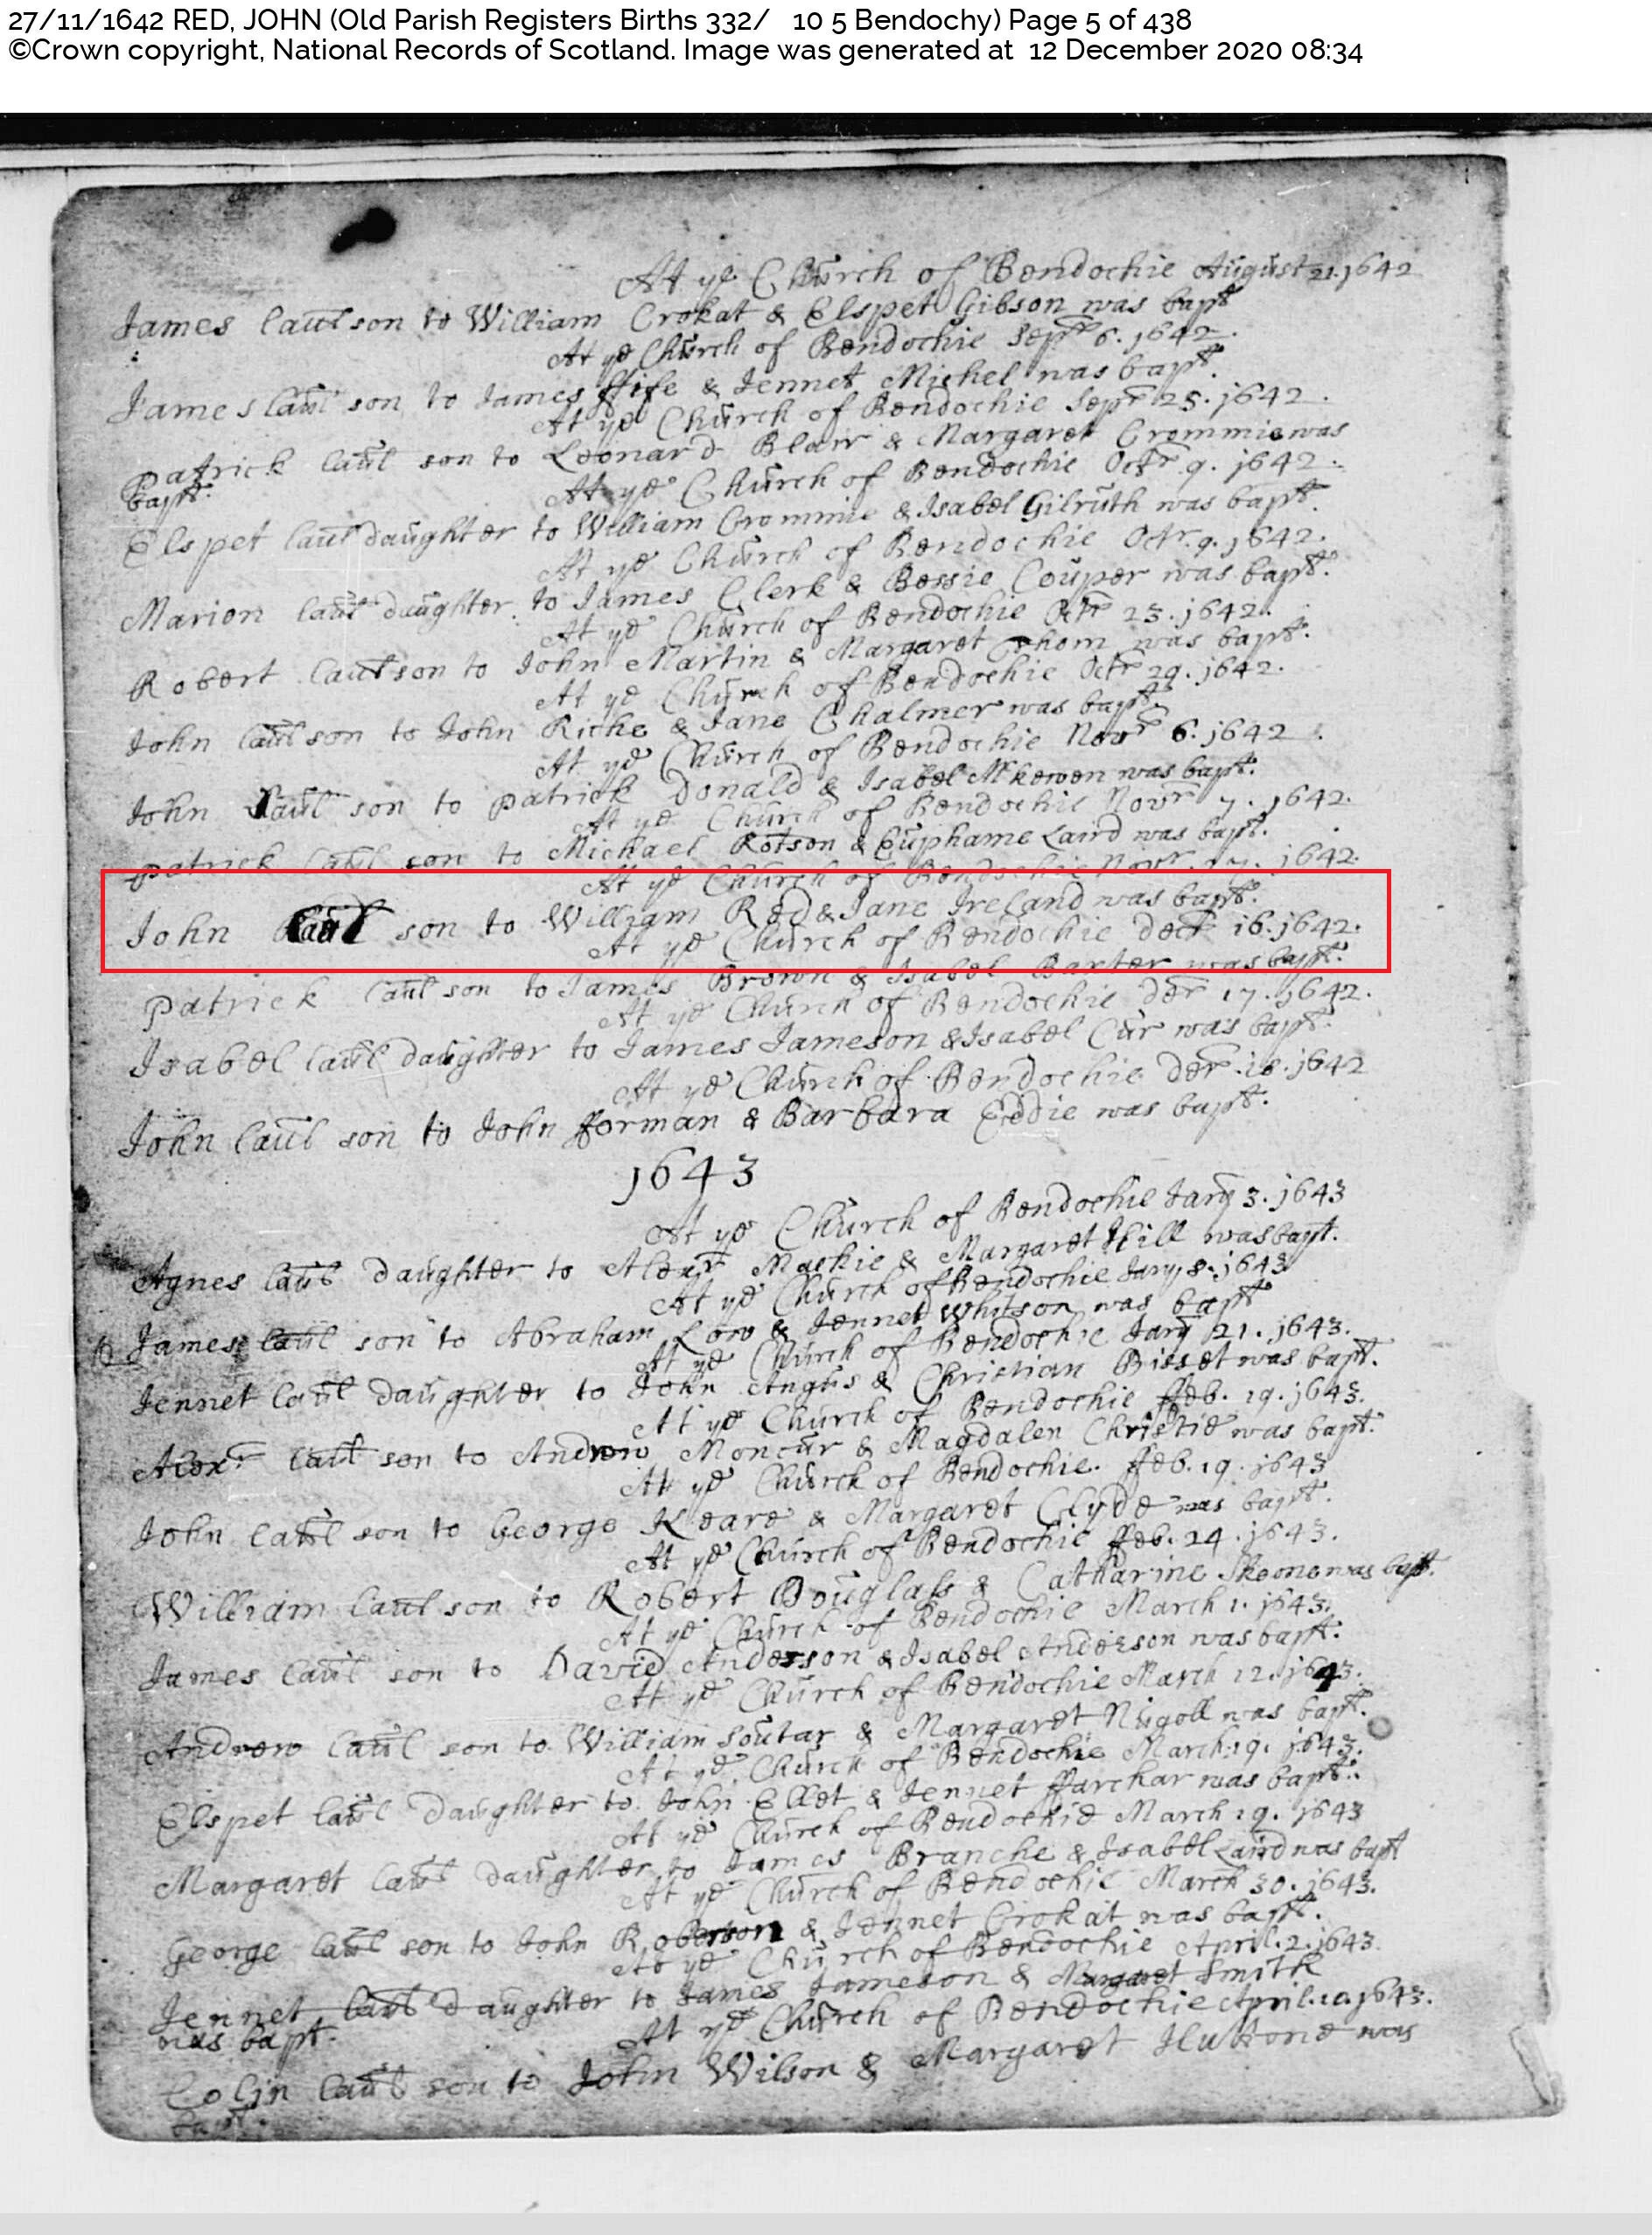 27/11/1642 RED, JOHN (Old Parish Registers Births 332/ 10 5 Bendochy) Page 5 of 438
©Crown copyright, National Records of Scotland. Image was generated at 12 December 2020 08:34
At ye Church of Bendochie August 21. 1642
James laūl son to William Crokat & Elspet Gibson was bapt
At ye Church of Bendochie Sepr 6. 1642.
James laūl son to James ffife & Jennet Michel was bapt.
At ye Church of Bendochie Sepr 25. 1642.
Patrick laūl son to Leonard Blair & Margaret Crommie was
bapt.
At ye Church of Bendochie Octr 9. 1642.
Elspet laūl daughter to William Crommie & Isabel Gilruth was bapt.
At ye Church of Bendochie Octr. 9. 1642.
Marion laūl daughter to James Clerk & Bessie Couper was bapt.
At ye Church of Bendochie Octr 23. 1642.
Robert laūl son to John Martin & Margaret Thom was bapt.
At ye Church of Bendochie Octr 29. 1642.
John laūl son to John Riche & Jane Chalmer was bapt.
At ye Church of Bendochie Novr 6. 1642.
John laūl son to Patrick Donald & Isabel Mkewen was bapt.
At ye Church of Bendochie Novr 7. 1642.
Patrick laūl son to Michael Rotson & Euphame Laird was bapt.
At ye Church of Bendochie Novr. 27. 1642.
John laūl son to William Red & Jane Ireland was bapt.
At ye Church of Bendochie decr 16. 1642.
Patrick laūl son to James Brown & Isabel Barter was bapt.
At ye Church of Bendochie der 17. 1642.
Isabel laūl daughter to James Jameson & Isabel Cur was bapt.
At ye Church of Bendochie der. 18. 1642
John laūl son to John fforman & Barbara Eddie was bapt.
1643
At ye Church of Bendochie Jary 3. 1643
Agnes laūl daughter to Alexr Mackie & Margaret Hill was bapt.
At ye Church of Bendochie Jary. 8. 1643
James laūl son to Abraham Low & Jennet Whitson was bapt
At ye Church of Bendochie Jary 21. 1643.
Jennet laūl daughter to John Angus & Christian Bisset was bapt.
At ye Church of Bendochie ffeb. 19. 1643.
Alexr laūl son to Andrew Moncur & Magdalen Christie was bapt.
At ye Church of Bendochie. ffeb. 19. 1643
John laūl son to George Keare & Margaret Clyde was bapt.
At ye Church of Bendochie ffeb. 24. 1643.
William laūl son to Robert Douglass & Catharine Skeone was bapt.
At ye Church of Bendochie March 1. 1643.
James laūl son to David Anderson & Isabel Anderson was bapt.
At ye Church of Bendochie March 12. 1643.
Andrew laūl son to William Soutar & Margaret Nugoll was bapt.
At ye Church of Bendochie March. 19. 1643.
Elspet laūl daughter to John Ellet & Jennet ffarchar was bapt.
At ye Church of Bendochie March 19. 1643
Margaret laūl daughter to James Branche & Isabel Laird was bapt
At ye Church of Bendochie March 30. 1643.
George laūl son to John Robertson & Jennet Crokat was bapt.
At ye Church of Bendochie April. 2. 1643.
Jennet laūl daughter to James Jameson & Margaret Smith
was bapt.
At ye Church of Bendochie April. 10. 1643.
Colin laūl son to John Wilson & Margaret was
bapt.